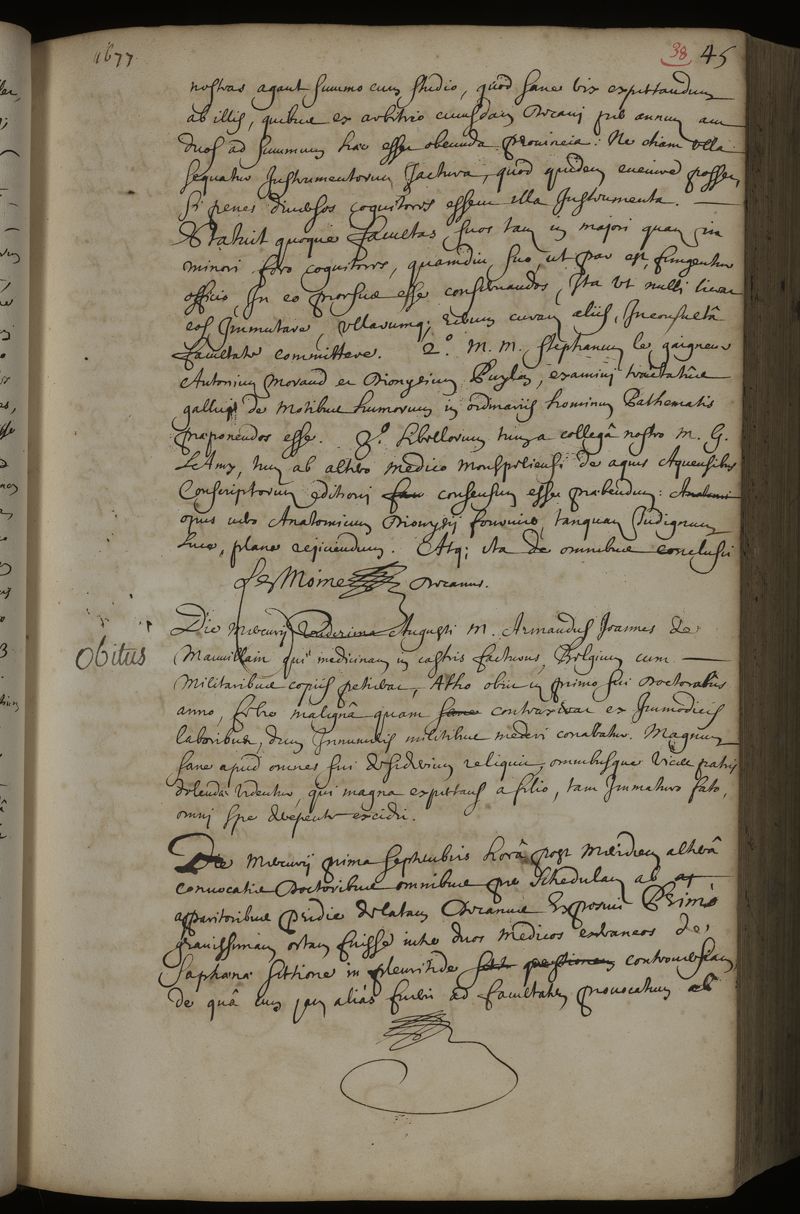 1677
38 45
nostras agant summo cum studio, quod sane vix expectandum
ab illis, quibus ex arbitrio cujusdam Decani per annum aut
duos ad summum hac esset obeunda provincia: Ne etiam ulla
sequatur Instrumentorum Jactura, quod quidem evenire posset,
si penes diversos cognitores essent illa Instrumenta. —
Statuit quoque facultas suos tam in majori quam in
minori foro cognitores, quamdiu suo, ut par est, fungentur
officio, In eo prorsus esse conservandos, Ita ut nulli liceat
eos Immutare, ullarumq; rerum curam aliis, Inconsultâ
facultate committere. 2.° M. M. Stephanum le gaigneur
Antonium Morand et Dionysium Puylon, examini tractatûs
gallici de Motibus humorum in ordinariis hominum Pathematis
præponendos esse. 3.° Libellorum tum a collegâ nostro M. G.
LAmy, tum ab altero medico Monspeliensi de aquis Aquensibus
Conscriptorum editioni consensum esse præbendum:
opus vero Anatomicum Dionysii tanquam Indignum
Luce, plane rejiciendum. Atq; ita de omnibus conclusi
Le Moine Decanus.
Obitus
Die Mercurii Augusti M. Armandus Joannes de
Mauvillain qui medicinam in castris facturus, Belgium cum —
Militaribus copiis petierat, Atho obiit in primo sui Doctoratûs
anno, febre malignâ quam contraxerat ex Immodicis
laboribus, dum Innumeris militibus mederi conabatur. Magnum
sane apud omnes sui desiderium reliquit, omnibusque vices patris
dolendæ videntur, qui magna expectans a filio, tam Immaturo fato,
omni spe derepente excidit.
Die Mercurii prima septembris horâ post Meridiem alterâ
convocatis Doctoribus omnibus per schedulam ab
apparitoribus pridie delatam Decanus Exposuit Primò
gravissimam ortam fuisse inter duos Medicos extraneos de
Saphænæ sectione in pleuritide controversiam,
de quâ cum jam aliàs fuerit ad facultatem provocatum ab